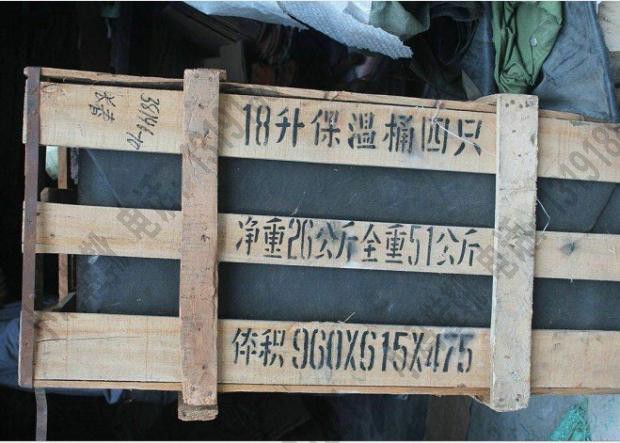 18升保温桶四只
净重26公斤全重51公斤
体积960X615X475